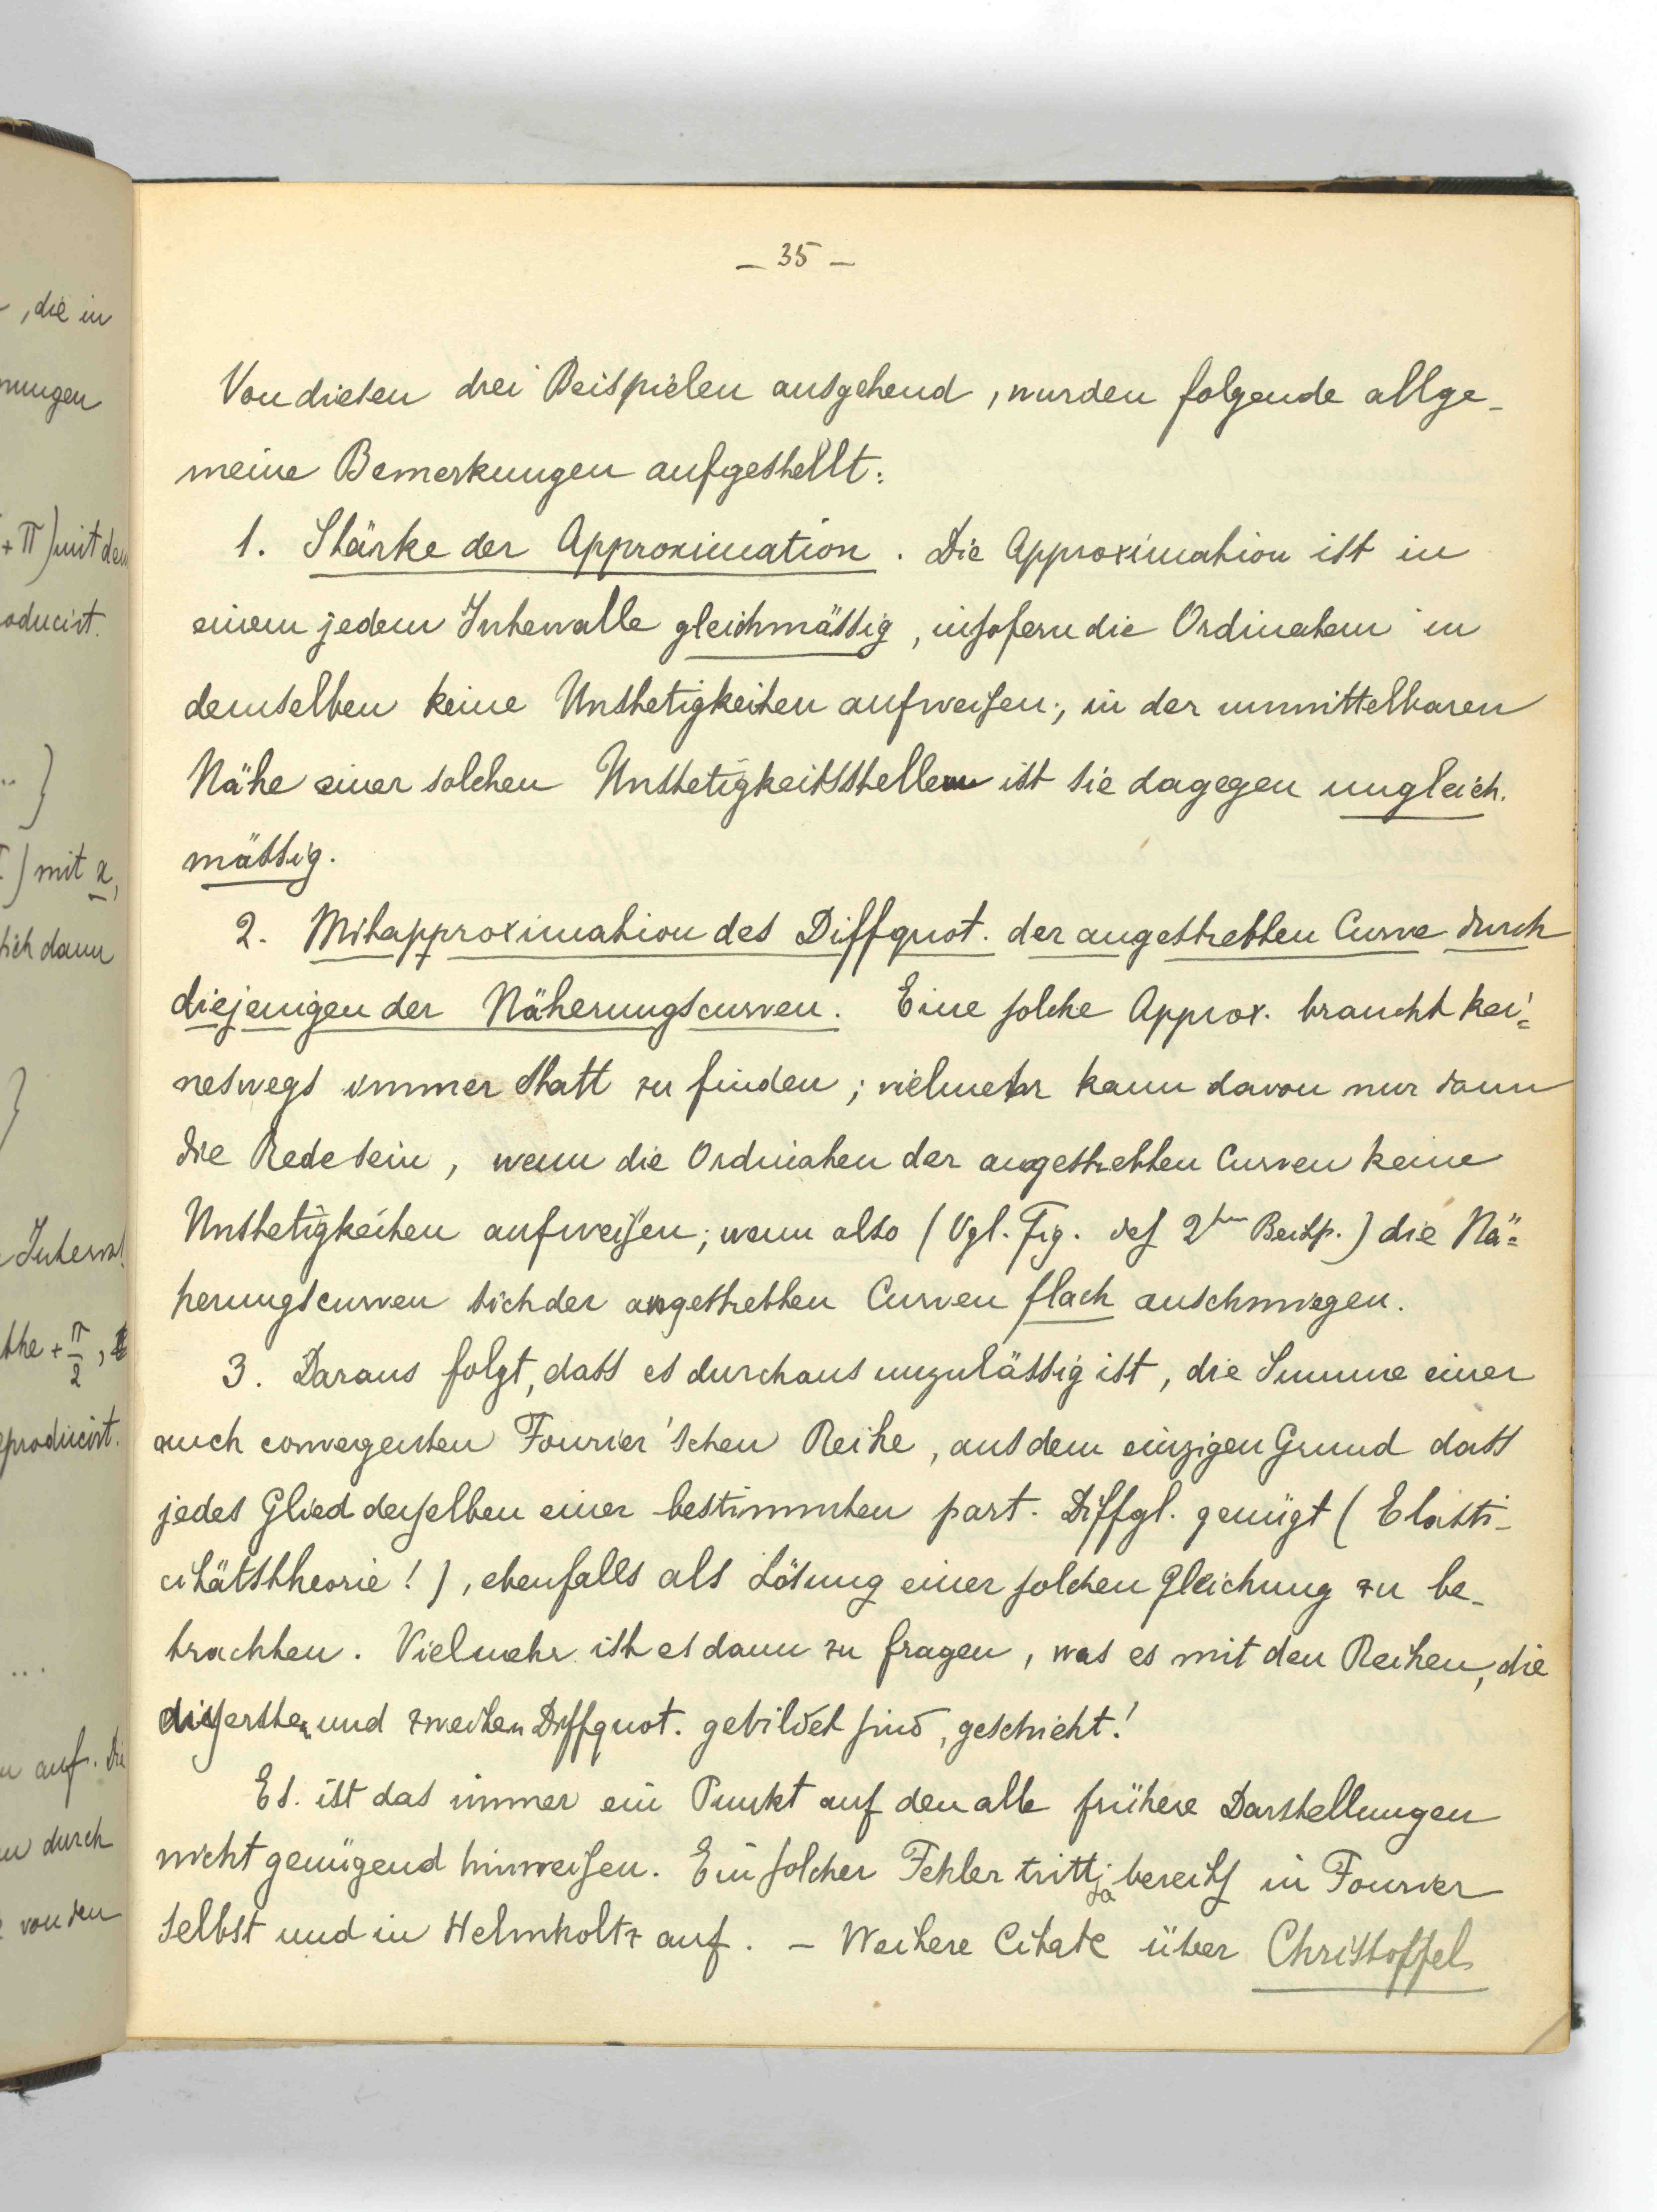 , die in
nungen
+ π) mit dem
oducirt.
.. }
) mit x,
sich dann
}
Interval
the + π/2,
eproducirt.
...
auf. Die
durch
von den
– 35 –
Von diesen drei Beispielen ausgehend, wurden folgende allge-
meine Bemerkungen aufgestellt:
1. Stärke der Approximation. Die Approximation ist in
einem jedem Intervalle gleichmässig, insofern die Ordinaten in
demselben keine Unstetigkeiten aufweisen; in der unmittelbaren
Nähe einer solchen Unstetigkeitsstelle ist sie dagegen ungleich-
mässig.
2. Mitapproximation des Diffquot. der angestrebten Curve durch
diejenigen der Näherungscurven. Eine solche Approx. braucht kei=
neswegs immer statt zu finden; vielmehr kann davon nur dann
die Rede sein, wenn die Ordinaten der angestrebten Curven keine
Unstetigkeiten aufweisen; wenn also (Vgl. Fig. des 2ten Beisp.) die Nä=
herungscurven sich der angestrebten Curven flach anschmiegen.
3. Daraus folgt, dass es durchaus unzulässig ist, die Summe einer
auch convergenten Fourier'schen Reihe, aus dem einzigen Grund dass
jedes Glied derselben einer bestimmten part. Diffgl. genügt (Elasti-
citätstheorie!), ebenfalls als Lösung einer solchen Gleichung zu be-
trachten. Vielmehr ist es dann zu fragen, was es mit den Reihen, die
ersten und zweiten Diffquot. gebildet sind, geschieht!
Es. ist das immer ein Punkt auf den alle frühere Darstellungen
nicht genügend hinweisen. Ein solcher Fehler tritt ja bereits in Fourier
selbst und in Helmholtz auf. – Weitere Citate über Christoffel